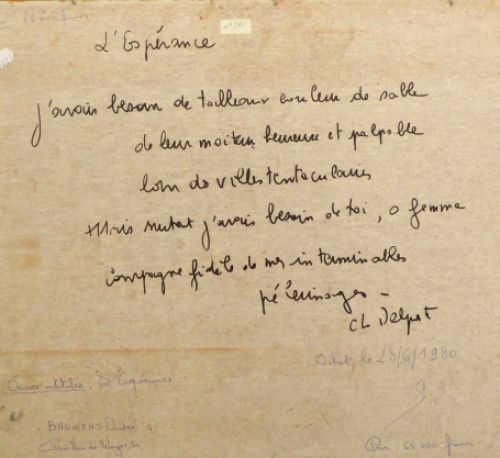 65 000 francs
L'Espérance
J'avais besoin de tailleurs couleur de sable
de leur moiteur heureuse et palpable
loin des villes tentaculaires
Mais surtout j'avais besoin de toi, o femme
compagne fidèle de mes interminables
pélerinages
Ch Delport
le 23/6/1980
Oeuvre intitulée: "L'Espérance
BAUWENS André
Prix: 65 000 francs